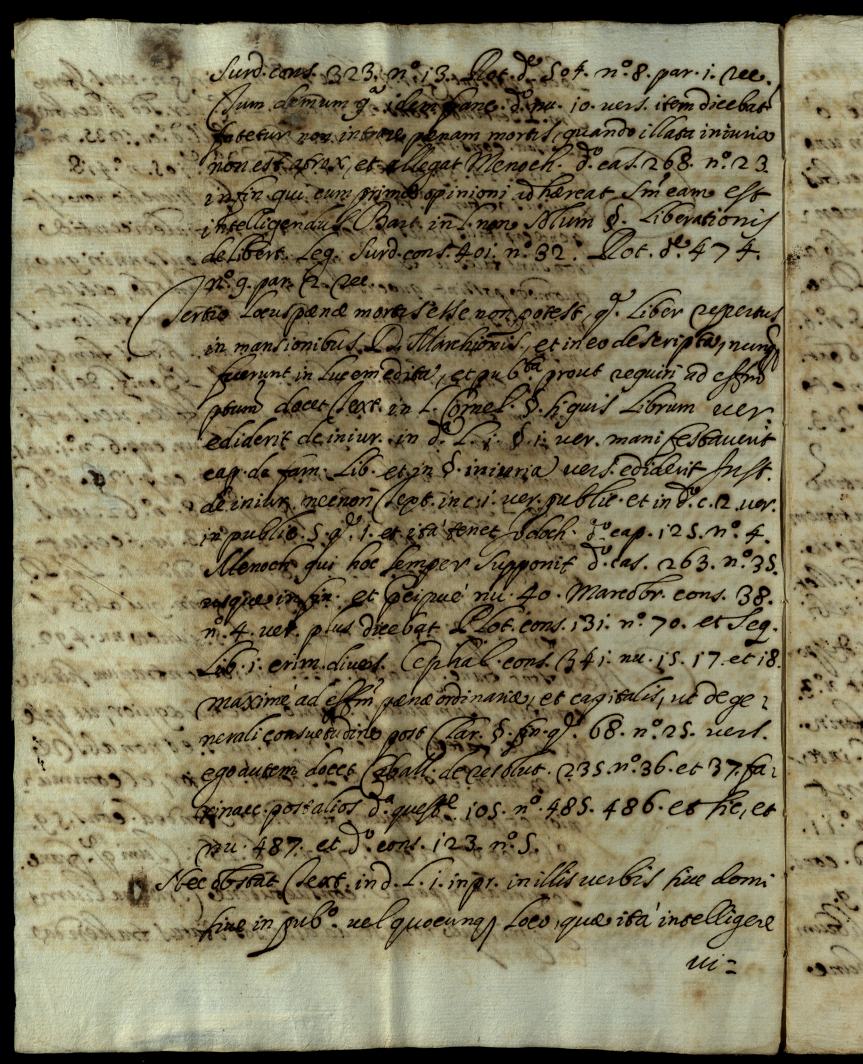 Surd. cons. 323. nº. 13. Rot. dº. 504. nº. 8. par. 1. rec.
Tum demum qª. idem franc. dº. nu. 10. vers. item dicebat
fatetur non intrare penam mortis, quando illata iniuria
non est atrox, et allegat Menoch. dº. cas. 268. nº. 23
in fin. qui cum primæ opinioni adhæreat Sm̄ eam est
intelligendus Bart. in l. non solum §. Liberationis
de libert. Leg. Surd. cons. 401. nº. 32. Rot. dº. 474.
nº. 9. par. 2. rec.
Tertio Locus pænæ mortis esse non potest, qª. Liber repertus
in mansionibus D. Marchionis, et in eo descripta, nunqª
fuerunt in Lucem edita, et pubᵗᵃ prout requiri ad effm̄
ptum docet Text. in L. Cornel. §. si quis Librum ver.
ediderit de iniur. in dº. L. 1. §. 1. ver. manifestaverit
cap. de fam. Lib. et in §. iniuria vers. ediderit Inst.
de iniur. necnon Text. in c. 1. ver. public. et in dº. c. 2. ver.
in public. 5. qª. 1. et ità tenet Boloch. dº. cap. 125. nº. 4.
Menoch. qui hoc semper supponit dº. cas. 263. nº. 35.
usque in fin. et pcipuè nu. 40. Marcobr. cons. 38.
nº. 4. ver. plus dicebat Rot. cons. 131. nº. 70. et Seq.
Lib. 1. crim. divers. Cephal. cons. 341. nu. 15. 17. et 18.
maximè ad effm̄ pænæ ordinariæ, et capitalis, ut de ge=
nerali consuetudine post Clar. §. fin. qª. 68. nº. 25. vers.
ego autem docet Caball. de resolut. 235. nº. 36. et 37. fa=
rinacc. post alios dª. quest. 105. nº. 485. 486. et hic, et
nu. 487. et dº. cons. 123. nº. 5.
Nec obstat Text. in d. L. 1. in pr. in illis verbis sive domi
sive in pubº. vel quocunq Loco, quæ ità intelligere
vi=